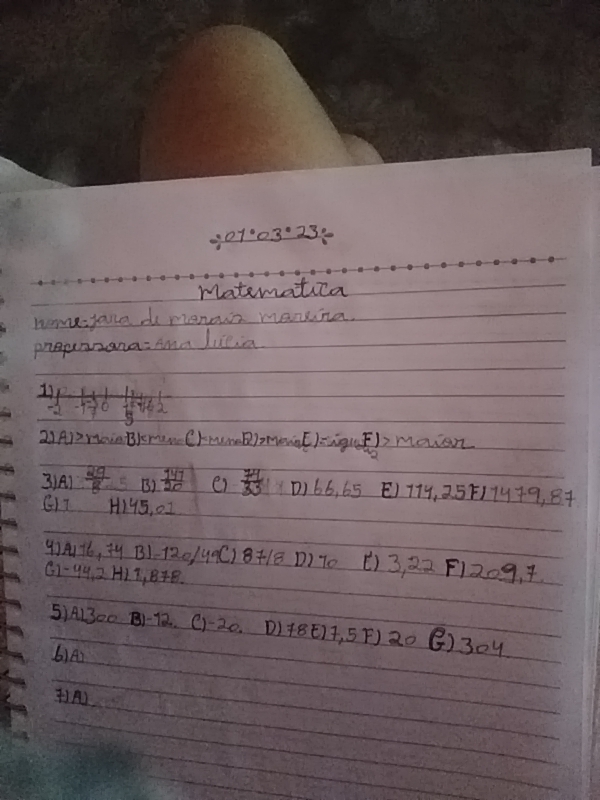 01•03•23
Matematica
nome=jara de morais moreira.
professora=Ana lúcia
1)
2)A)>maior B)<menor C)<menor D)>maior E)=igual F)>maior
3)A) B) 147/20 C) -74/33 D) 66,65 E) 114,25 F) 1479,87
G) 1 H) 45,02
4)A) 16,74 B) -120/49 C) 87/8 D) 70 E) 3,22 F) 209,7
G) -44,2 H) 1,878
5)A) 300 B) -12. C) -20. D) 78 E) 7,5 F) 20 G) 304
6)A)
7)A)